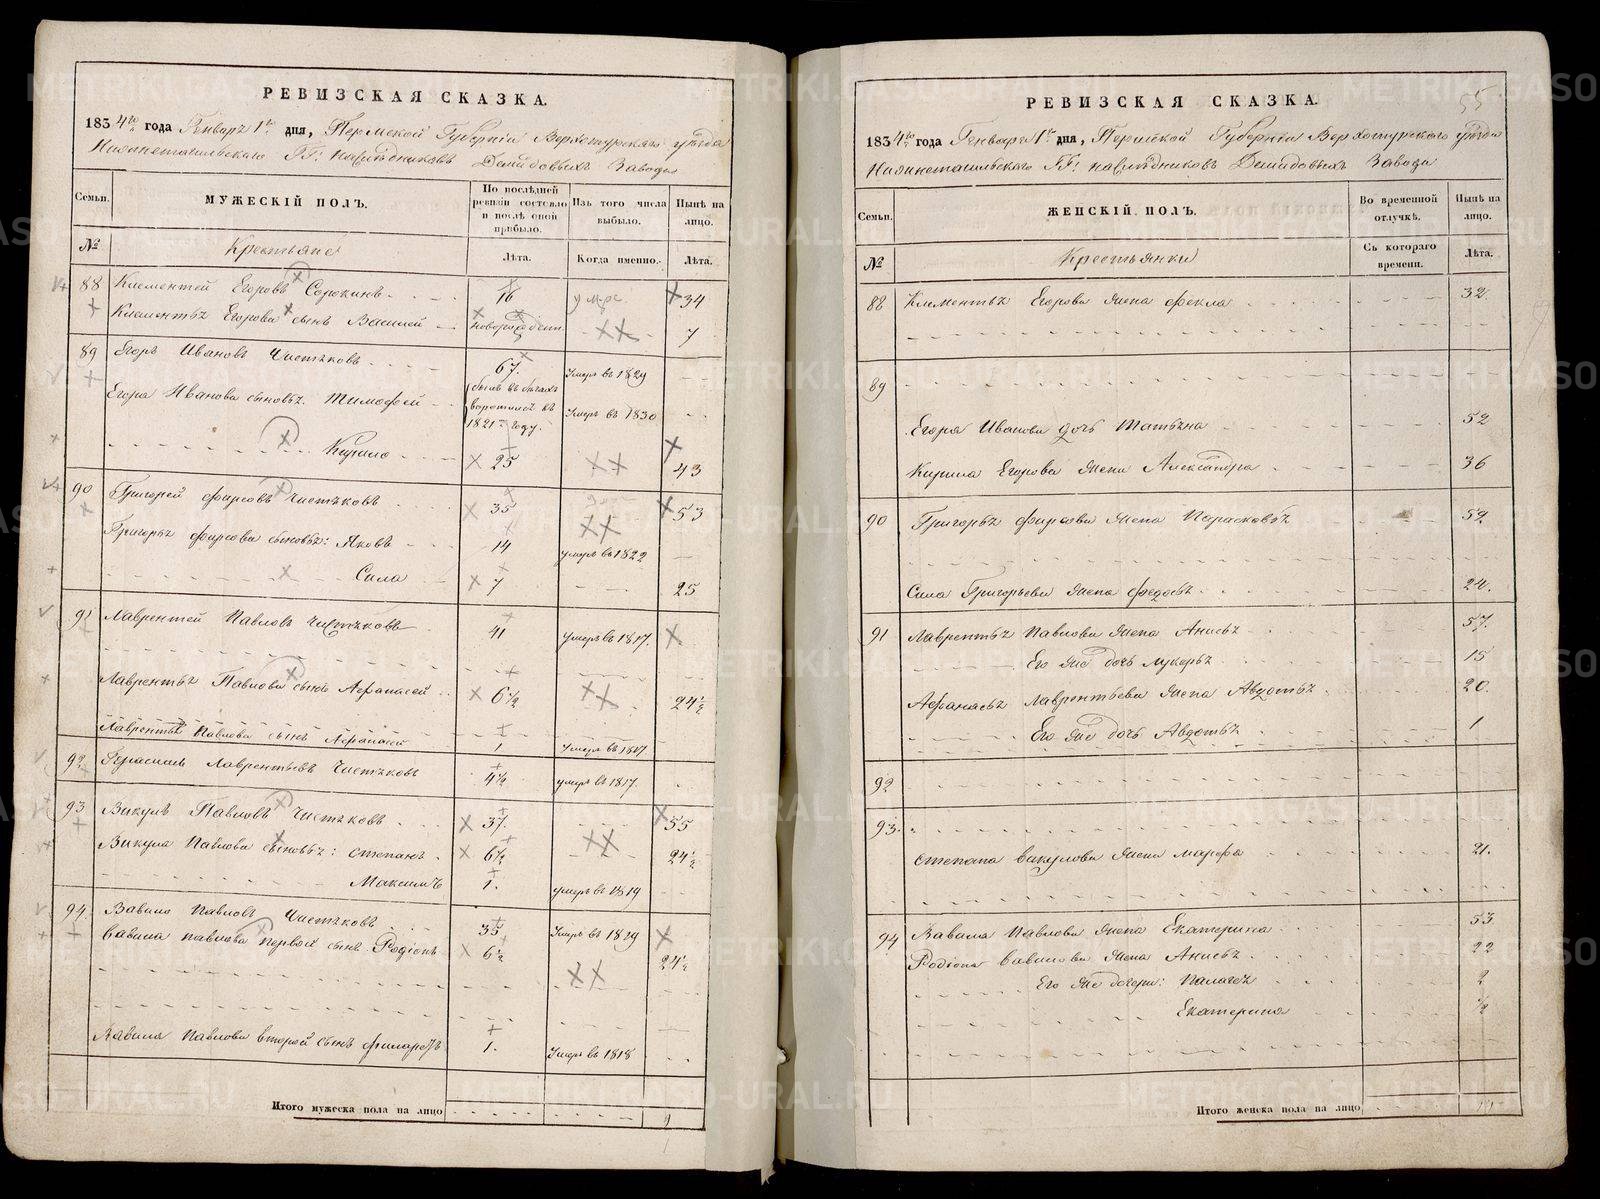 РЕВИЗСКАЯ СКАЗКА.
1834го года Генваря 1го дня, Пермской Губернiи Верхотурскаго уѣзда
Нижнетагильскаго ГГ: наслѣдниковъ Демидовыхъ Завода
Семьи.
МУЖЕСКIЙ ПОЛЪ.
По послѣдней ревизiи состояло и послѣ оной прибыло.
Изъ того числа выбыло.
Нынѣ на лицо.
№
Крестьяне
Лѣта.
Когда именно.
Лѣта.
88 Климентей Егоровъ Сорокинъ 16 34
Климентья Егорова сынъ Василей новорожден. 7
89 Егоръ Ивановъ Чистяковъ 67. Умеръ въ 1829
Егора Иванова сыновья: Тимофей былъ въ бѣгахъ воротился въ 1821 году. Умеръ въ 1830
Кирило 25 43
90 Григорей Фирсовъ Чистяковъ 35 53
Григорья Фирсова сыновья: Яковъ 14 умеръ въ 1822
Сила 7 25
91 Лаврентей Павловъ Чистяковъ 41 умеръ въ 1817.
Лаврентья Павлова сынъ Афанасей 6½ 24½
Лаврентья Павлова сынъ Афанасей 1 Умеръ въ 1817.
92 Герасимъ Лаврентьевъ Чистяковъ 4½ умеръ въ 1817.
93 Викулъ Павловъ Чистяковъ 37. 55
Викула Павлова сыновья: Степанъ 6½ 24½
Максимъ 1. умеръ въ 1819
94 Вавило Павловъ Чистяковъ 35 Умеръ въ 1829
Вавила Павлова первой сынъ Родiонъ 6½ 24½
Вавила Павлова второй сынъ Филаретъ 1. Умеръ въ 1818
Итого мужеска пола на лицо 9
55
РЕВИЗСКАЯ СКАЗКА.
1834го года Генваря 1го дня, Пермской Губернiи Верхотурскаго уѣзда
Нижнетагильскаго ГГ: наслѣдниковъ Демидовыхъ Завода
Семьи.
ЖЕНСКIЙ ПОЛЪ.
Во временной отлучкѣ.
Нынѣ на лицо.
№
Крестьянки
Съ котораго времени.
Лѣта.
88 Климентья Егорова жена Фекла 32.
89
Егора Иванова дочь Татьяна 52
Кирила Егорова жена Александра 36
90 Григорья Фирсова жена Парасковья 52
Сила Григорьева жена Федосья 24.
91 Лаврентья Павлова жена Анисья 57.
Его же дочь Лукерья 15
Афанасья Лаврентьева жена Авдотья 20.
Его же дочь Авдотья 1
92
93.
Степана Викулова жена Марфа 21.
94 Вавила Павлова жена Екатерина 53
Родiона Вавилова жена Анисья 22
Его же дочери: Палагея 2
Екатерина ½
Итого женска пола на лицо
METRIKI.GASO-URAL.RU